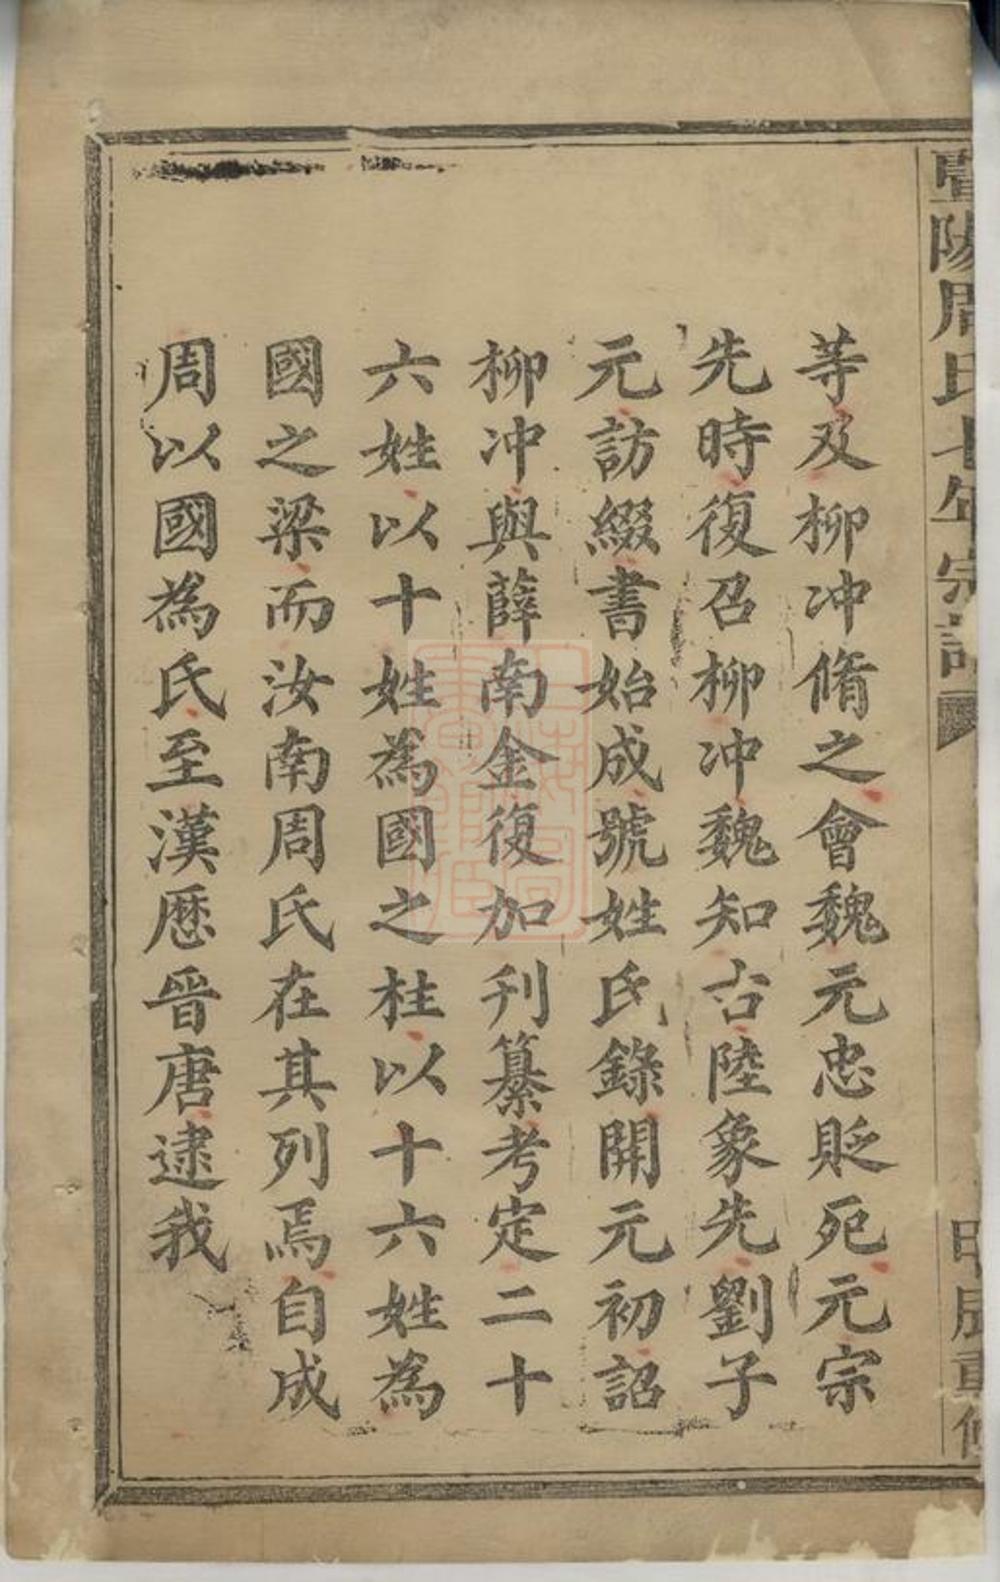 暨陽周氏七年宗譜
甲辰重修
等及柳冲脩之會魏元忠貶死元宗
先時復召柳冲魏知古陸象先劉子
元訪綴書始成號姓氏錄開元初詔
柳冲與薛南金復加刋纂考定二十
六姓以十姓為國之柱以十六姓為
國之梁而汝南周氏在其列焉自成
周以國為氏至漢歷晉唐逮我